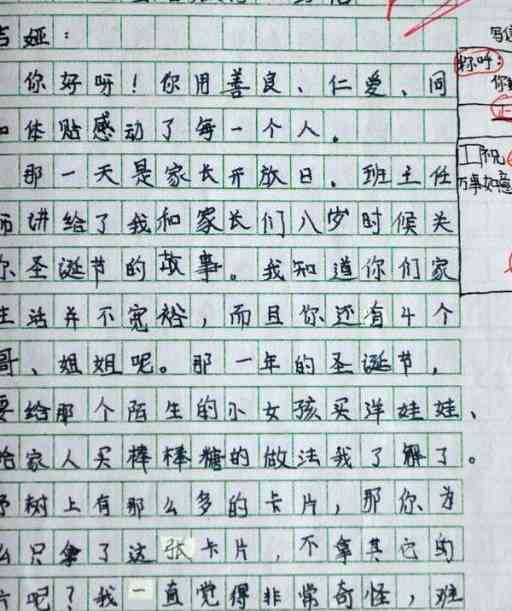 娅：
你好呀！你用善良、仁爱、同
体贴感动了每一个人.
那一天是家长开放日. 班主任
师讲给了我和家长们八岁时候关
你圣诞节的故事。我知道你们家
生活并不宽裕，而且你还有4个
哥、姐姐呢。那一年的圣诞节，
要给那个陌生的小女孩买洋娃娃、
给家人买棒棒糖的做法我了解了。
树上有那么多的卡片，那你为
么只拿了这张卡片，不拿其它的
片呢？我一直觉得非常奇怪，难
称呼：
你
正
祝
万事如意